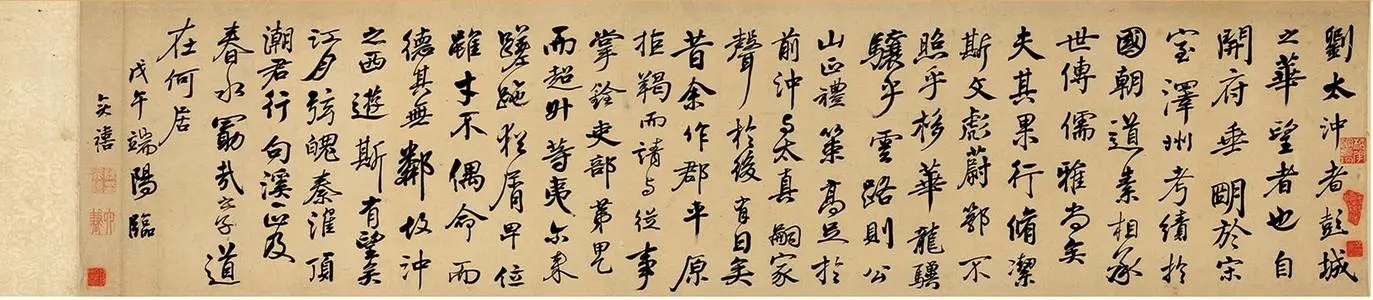 劉太沖者彭城
之華望者也自
開府垂明於宋
室澤州考績於
國朝道素相承
世傳儒雅尚矣
夫其果行脩潔
斯文彪蔚鄂不
照乎移華龍驥
驤乎雲路則公
山正禮策高足於
前沖与太真嗣家
聲於後有日矣
昔余作郡平原
拒羯而請与從事
掌銓吏部第甲
而超升等夷尒來
蹉跎猶屑卑位
雖才不偶命而
德其無鄰故沖
之西遊斯有望矣
江月弦魄秦淮頂
潮君行句溪正及
春水勗哉之子道
在何居
戊午端陽臨
奕禧